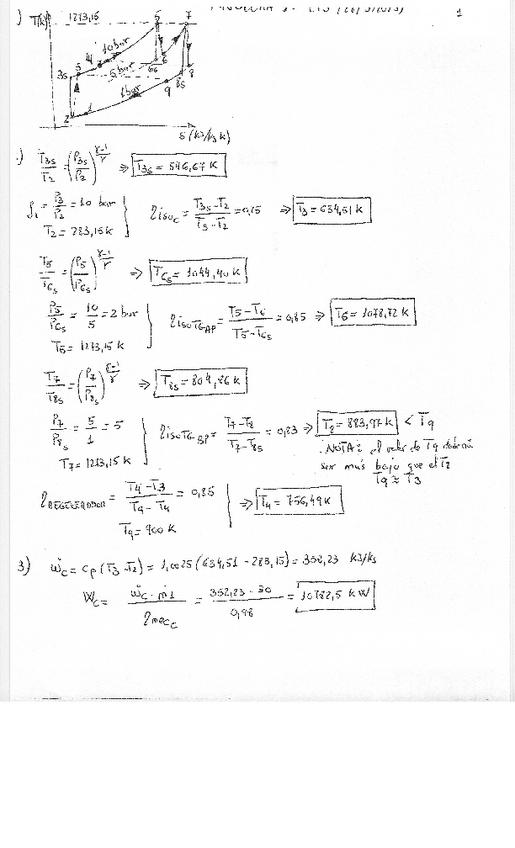 1
) T(K) 1273,15
5 7
10 bar
5 bar
1 bar
3s 3 4
6s 6
8s 8
9
2 1
S (kJ/kg K)
.) T3s/T2 = (P3s/P2)^(γ-1/γ) ⇒ T3s = 546,67 K
P3/P2 = 10 bar
T2 = 283,15 K
ηisoC = T3s-T2/T3-T2 = 0,75 ⇒ T3 = 634,51 K
T5/T6s = (P5/P6s)^(γ-1/γ) ⇒ T6s = 1044,40 K
P5/P6s = 10/5 = 2 bar
T5 = 1273,15 K
ηisoTGAP = T5-T6/T5-T6s = 0,85 ⇒ T6 = 1078,72 K
T7/T8s = (P7/P8s)^(γ-1/γ) ⇒ T8s = 804,26 K
P7/P8s = 5/1 = 5
T7 = 1273,15 K
ηisoTGBP = T7-T8/T7-T8s = 0,83 ⇒ T8 = 883,97 K < T9
NOTA: el valor de T9 debería
ser más bajo que el T8
T9 ≈ T3
ηREGENERADOR = T4-T3/T9-T4 = 0,85 ⇒ T4 = 756,49 K
T9 = 900 K
3) ẇc = cp (T3-T2) = 1,0025 (634,51 - 283,15) = 352,23 kJ/kg
Wc = ẇc · ṁ1/ηmecc = 352,23 · 30/0,98 = 10782,5 kW